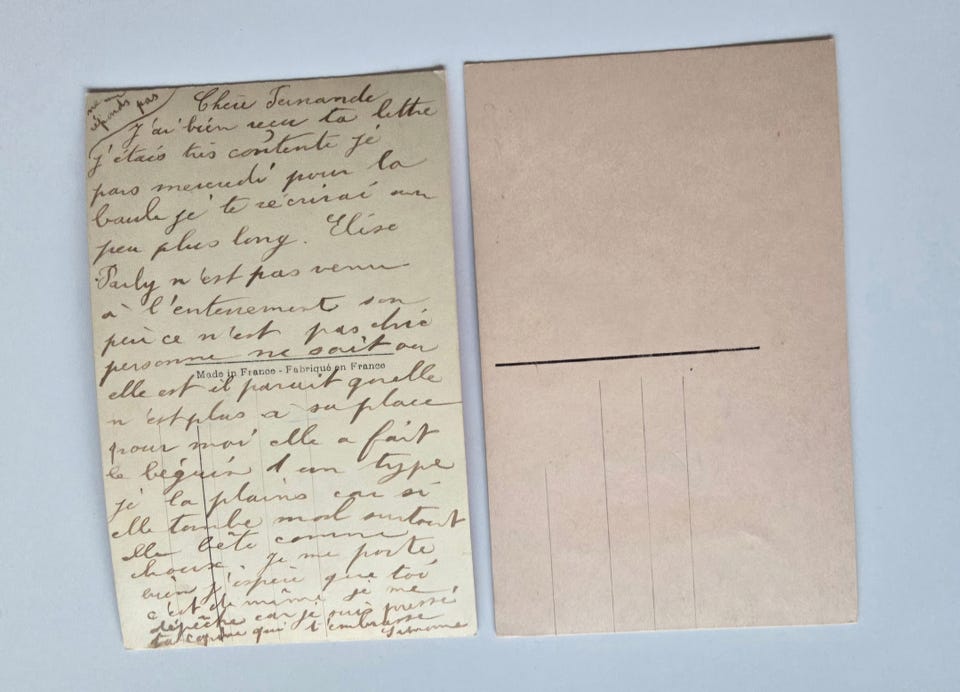 ne m
réponds pas
Chère Fernande
J'ai bien reçu ta lettre
j'étais très contente je
pars mercredi pour la
baule je te récrirai un
peu plus long. Elise
Parly n'est pas venu
à l'enterrement son
père ce n'est pas chic
personne ne sait ou
Made in France - Fabriqué en France
elle est il parait quelle
n'est plus a sa place
pour moi elle a fait
le béguin 1 un type
je la plains car si
elle tombe mal surtout
elle bête comme
choux je me porte
bien j'espère que toi
c'est de même je me
dépêche car je suis pressé
ta copine qui t'embrasse
Simone